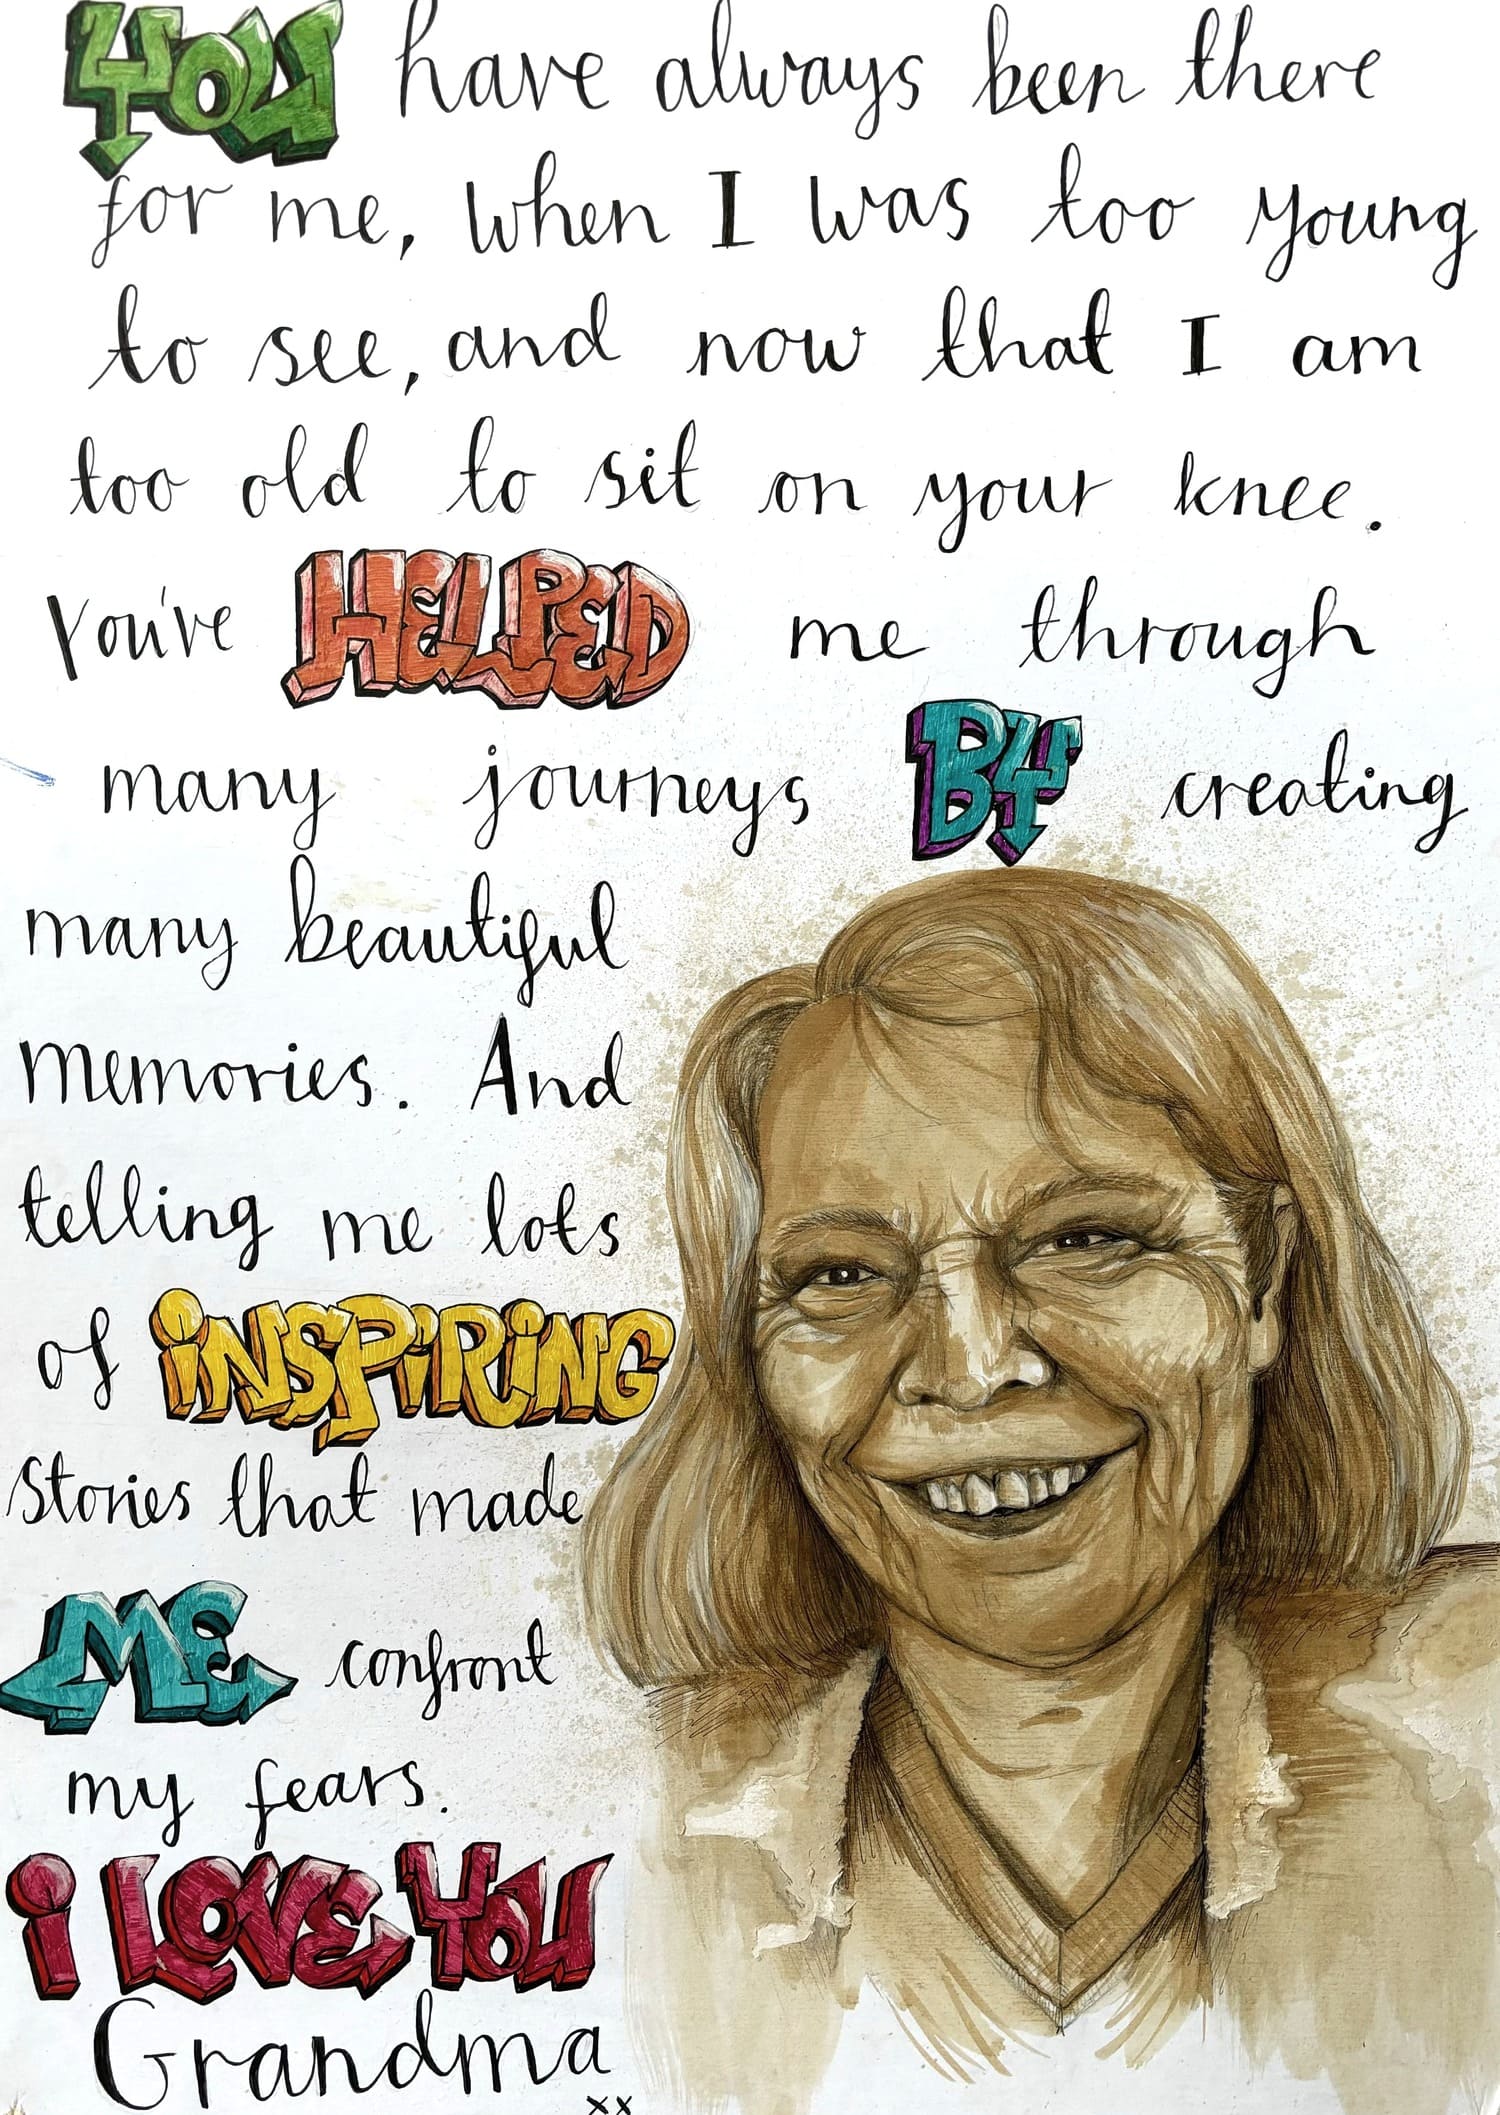 YOU have always been there
for me, when I was too young
to see, and now that I am
too old to sit on your knee.
You've HELPED me through
many journeys BY creating
many beautiful
memories. And
telling me lots
of iNSPiRiNG
stories that made
ME confront
my fears.
i LOVE YOU
Grandma
xx